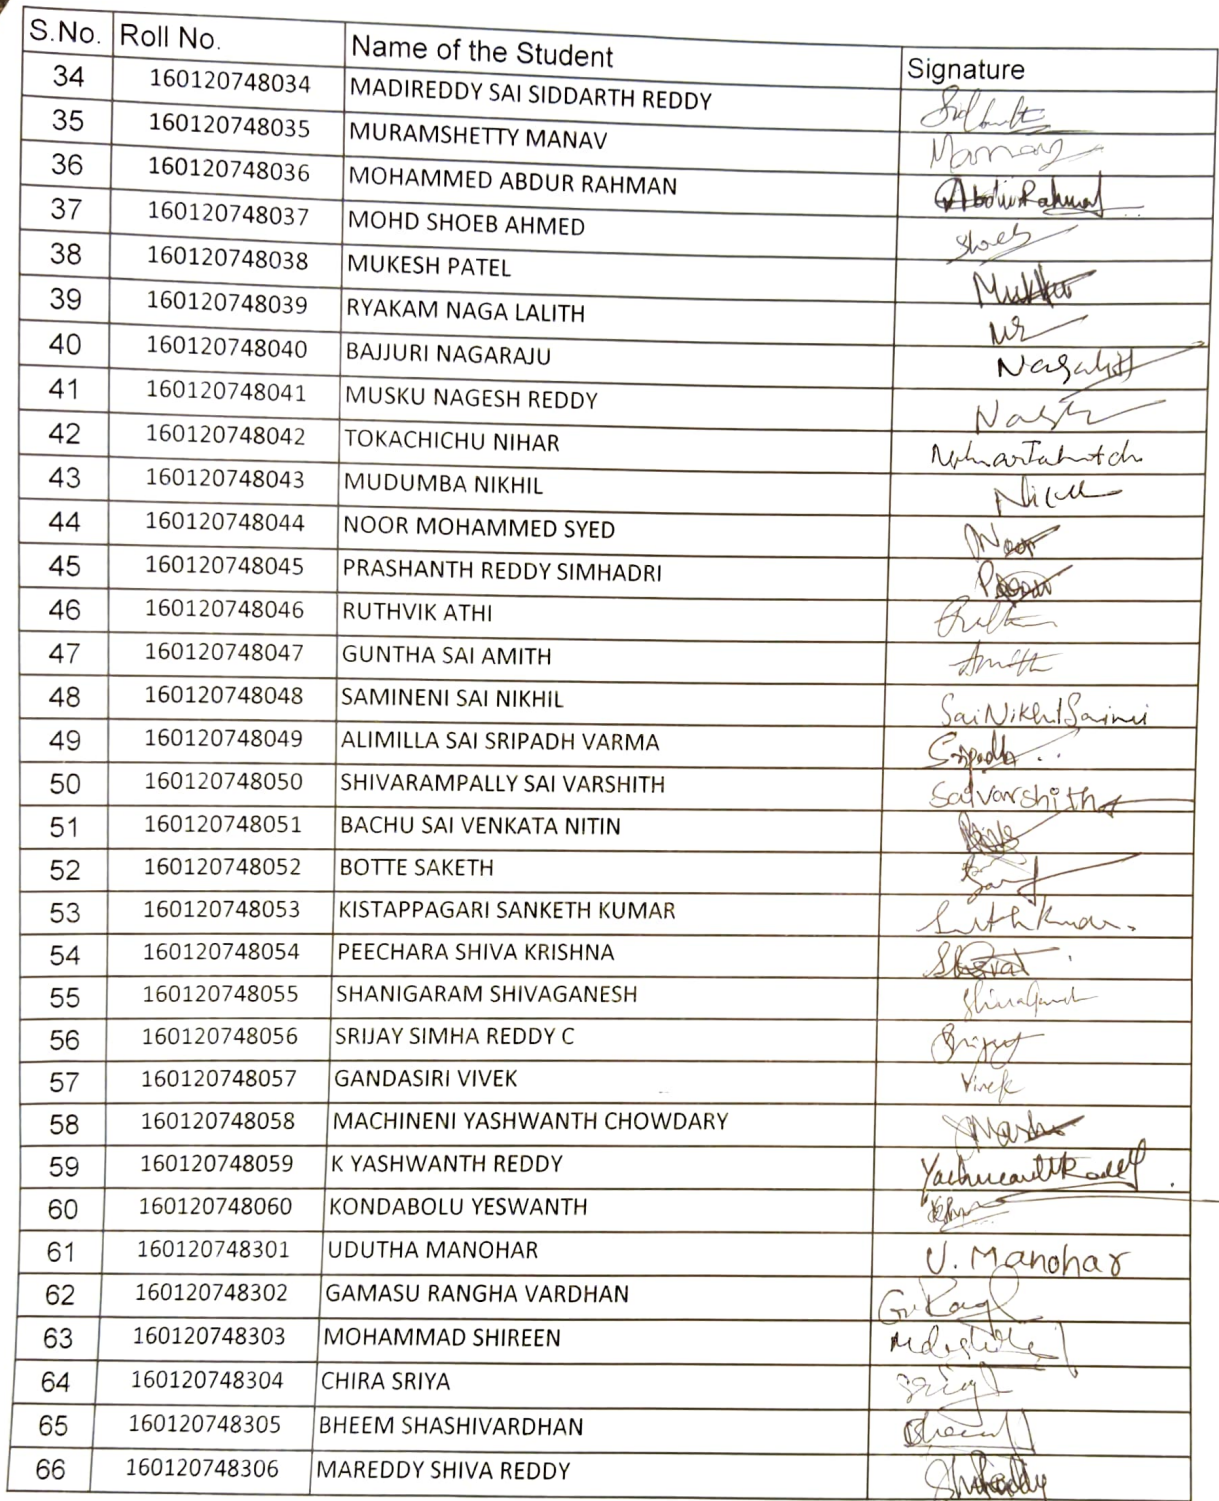 S.No. Roll No. Name of the Student Signature
34 160120748034 MADIREDDY SAI SIDDARTH REDDY
35 160120748035 MURAMSHETTY MANAV Manav
36 160120748036 MOHAMMED ABDUR RAHMAN AbdurRahman
37 160120748037 MOHD SHOEB AHMED Shoeb
38 160120748038 MUKESH PATEL
39 160120748039 RYAKAM NAGA LALITH
40 160120748040 BAJJURI NAGARAJU
41 160120748041 MUSKU NAGESH REDDY
42 160120748042 TOKACHICHU NIHAR
43 160120748043 MUDUMBA NIKHIL
44 160120748044 NOOR MOHAMMED SYED Noor
45 160120748045 PRASHANTH REDDY SIMHADRI
46 160120748046 RUTHVIK ATHI
47 160120748047 GUNTHA SAI AMITH Amith
48 160120748048 SAMINENI SAI NIKHIL
49 160120748049 ALIMILLA SAI SRIPADH VARMA
50 160120748050 SHIVARAMPALLY SAI VARSHITH Saivarshith
51 160120748051 BACHU SAI VENKATA NITIN
52 160120748052 BOTTE SAKETH
53 160120748053 KISTAPPAGARI SANKETH KUMAR
54 160120748054 PEECHARA SHIVA KRISHNA
55 160120748055 SHANIGARAM SHIVAGANESH
56 160120748056 SRIJAY SIMHA REDDY C
57 160120748057 GANDASIRI VIVEK Vivek
58 160120748058 MACHINENI YASHWANTH CHOWDARY
59 160120748059 K YASHWANTH REDDY YashwanthReddy
60 160120748060 KONDABOLU YESWANTH
61 160120748301 UDUTHA MANOHAR U. Manohar
62 160120748302 GAMASU RANGHA VARDHAN
63 160120748303 MOHAMMAD SHIREEN
64 160120748304 CHIRA SRIYA
65 160120748305 BHEEM SHASHIVARDHAN
66 160120748306 MAREDDY SHIVA REDDY